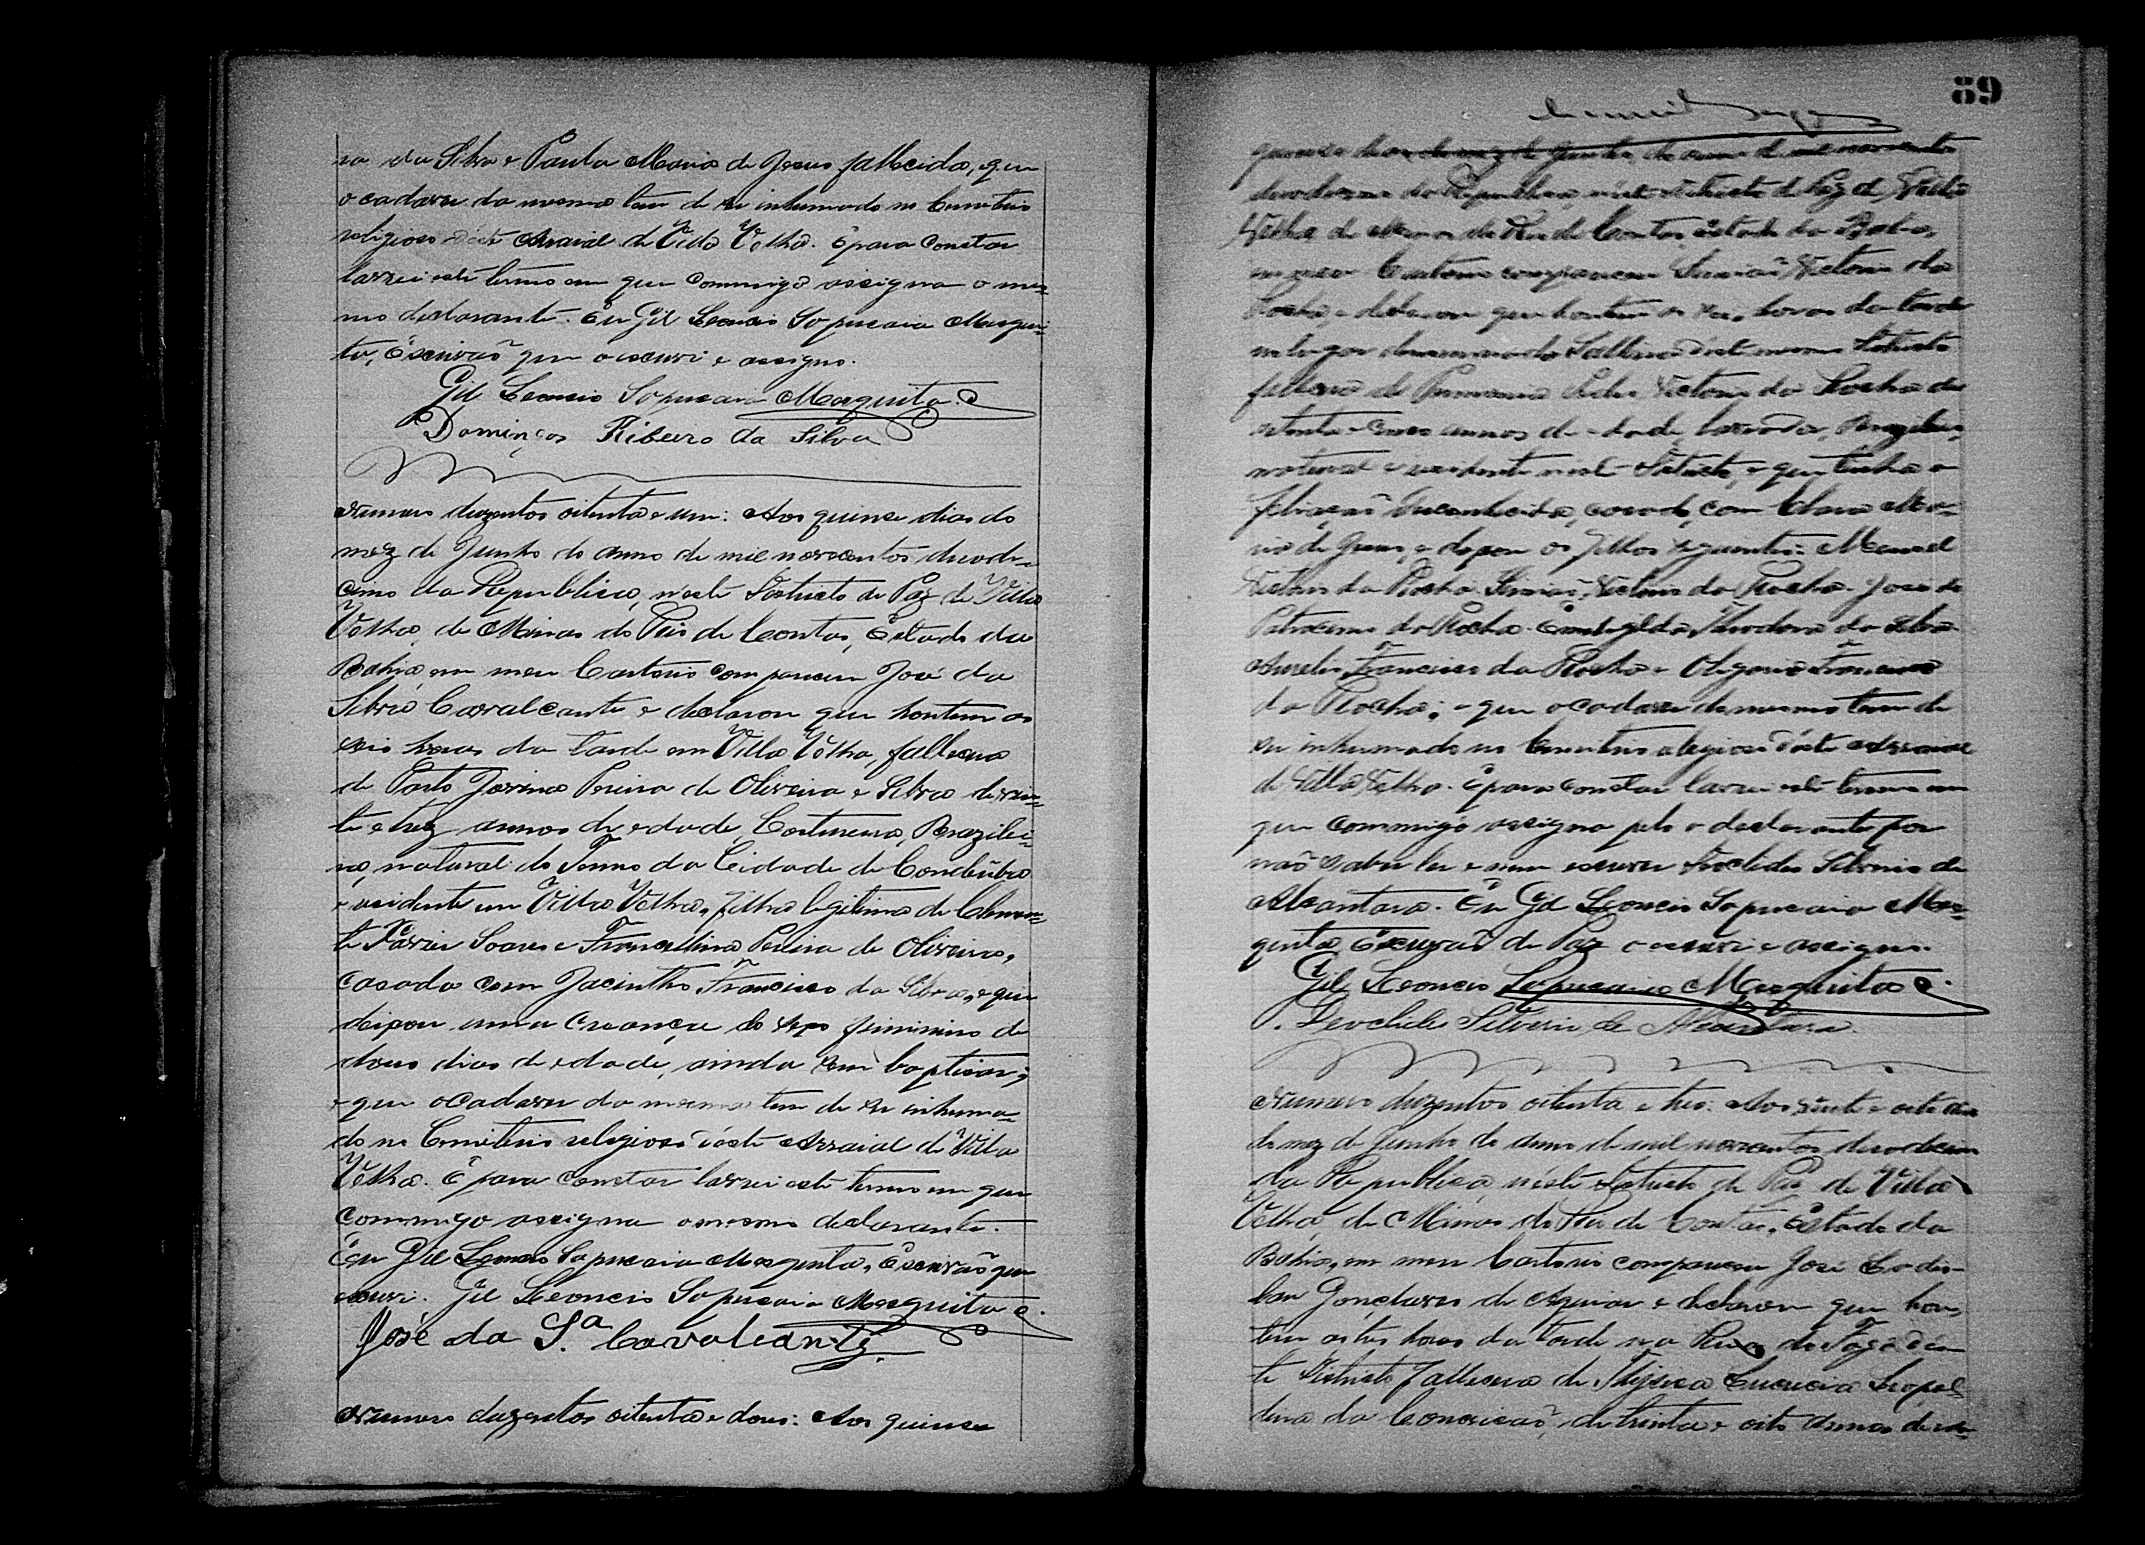 da Silva e Paula Maria de Jesus fallecida, que
o cadaver da mesma tem de ser inhumado no Cemiterio
religioso deste Arraial de Villa Velha. E para constar
lavrei este termo em que commigo assigna o mes-
mo declarante. Eu Gil Leoncio Sapucaia Mesqui-
ta, Escrivão que o escrevi e assigno.
Gil Leoncio Sapucaia Mesquita.
Domingos Ribeiro da Silva
Numero duzentos oitenta e um: Aos quinse dias do
mez de Junho do anno de mil novecentos duode-
cimo da Republica, neste Districto de Paz de Villa
Velha, de Minas do Rio de Contas, Estado da
Bahia, em meu Cartorio compareceu José da
Silva Cavalcante e declarou que hontem as
seis horas da tarde em Villa Velha, falleceu
de Parto Jovina Pereira de Oliveira e Silva de vin-
te e trez annos de edade, Costureira, Brazilei-
ra, natural do Termo da Cidade de Condeúba
e residente em Villa Velha, filha legitima de Clemen-
te Xavier Soares e Francellina Pereira de Oliveira,
casada com Jacintho Francisco da Silva, e que
deixou uma creança do sexo feminino de
dous dias de edade, ainda sem baptisar;
e que o cadaver da mesma tem de ser inhuma-
do no Cemiterio religioso deste Arraial de Villa
Velha. E para constar lavrei este termo em que
commigo assigna o mesmo declarante.
Eu Gil Leoncio Sapucaia Mesquita, Escrivão que
escrevi. Gil Leoncio Sapucaia Mesquita
José da S.ª Cavalcante
Numero duzentos oitenta e dous: Aos quinse
89
quinse dias do mez de Junho do anno de mil novecentos
duodecimo da Republica, neste Districto de Paz de Villa
Velha de Minas do Rio de Contas, Estado da Bahia,
em meu Cartorio compareceu Simião Victorio da
Rocha, e declarou que hontem as horas da tarde
no lugar denominado deste mesmo Districto
falleceu de Victorio da Rocha de
annos de edade, lavrador, Brazileiro,
natural e residente neste Districto, e que tinha a
filiação desconhecida, casado com Clara Ma-
ria de Jesus, e deixou os filhos seguintes: Manoel
Victorio da Rocha, Simião Victorio da Rocha, José do
Patrocinio da Rocha, Theodora da Silva
Aurelio Francisco da Rocha e Olegario Francisco
da Rocha; e que o cadaver do mesmo tem de
ser inhumado no Cemiterio religioso deste Arraial
de Villa Velha. E para constar lavrei este termo em
que commigo assigna pelo o declarante por
não saber ler e nem escrever Deoclides Silverio de
Alcantara. Eu Gil Leoncio Sapucaia Mes-
quita, Escrivão de Paz o escrevi e assigno.
Gil Leoncio Sapucaia Mesquita
Deoclides Silverio de Alcantara
Numero duzentos oitenta e tres: Aos vinte e oito dias
do mez de Junho do anno de mil novecentos duodecimo
da Republica, neste Districto de Paz de Villa
Velha, de Minas do Rio de Contas, Estado da
Bahia, em meu Cartorio compareceu José
Gonçalves de Aguiar e declarou que hon-
tem as tres horas da tarde na Rua do des-
te Districto falleceu de Thysica Leopol-
dina da Conceição, de trinta e oito annos de eda-